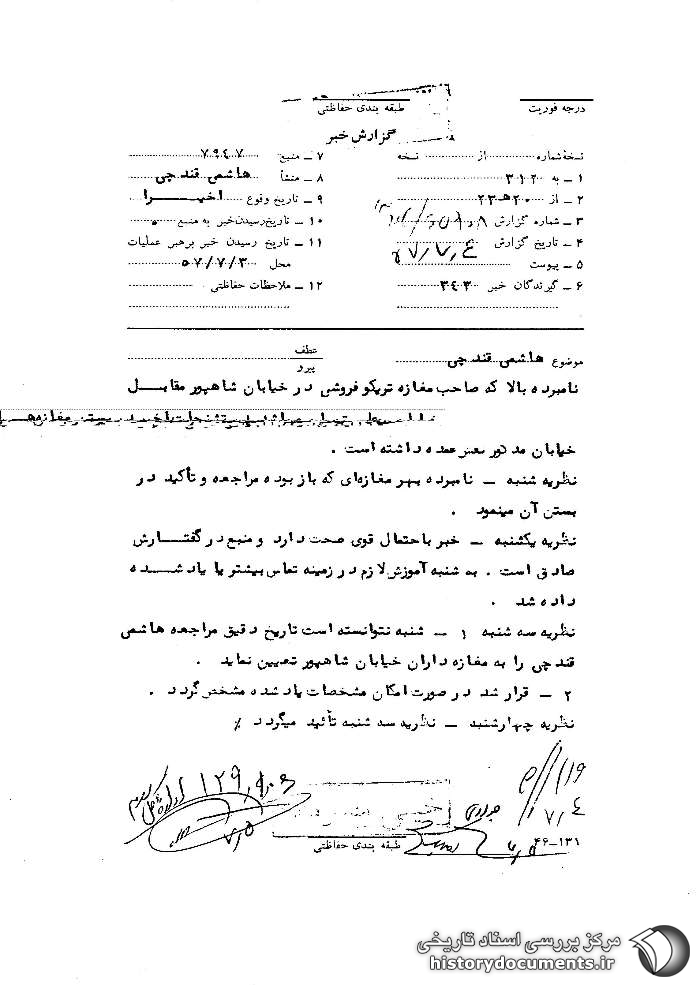 درجه فوریت
طبقه بندی حفاظتی
گزارش خبر
نسخه شماره از نسخه
۱ ـ به ۳۱۲
۲ ـ از ۲۰هـ۲۳
۳ ـ شماره گزارش
۴ ـ تاریخ گزارش ۵۷/۷/۴
۵ ـ پیوست
۶ ـ گیرندگان خبر ۳۴۳
۷ ـ منبع ۷۹۴۷
۸ ـ منشأ هاشمی قند چی
۹ ـ تاریخ وقوع اخیــرا
۱۰ ـ تاریخ رسیدن خبر به منبع
۱۱ ـ تاریخ رسیدن خبر برهبر عملیات
محل ۵۷/۷/۳
۱۲ ـ ملاحظات حفاظتی
موضوع هاشمی قند چی
عطف
پیرو
نامبرده بالا که صاحب مغازه تریکو فروشی در خیابان شاهپور مقابــل
خیابان مذکور سعی عمده داشته است .
نظریه شنبه ـ نامبرده بهر مغازه‌ای که باز بوده مراجعه و تأکید در
بستن آن مینمود .
نظریه یکشنبه ـ خبر باحتمال قوی صحت دارد و منبع در گفتــارش
صادق است . به شنبه آموزش لازم در زمینه تماس بیشتر با یاد شــده
داده شد .
نظریه سه شنبه ۱ ـ شنبه نتوانسته است تاریخ دقیق مراجعه هاشمی
قند چی را به مغازه داران خیابان شاهپور تعیین نماید .
۲ ـ قرار شد در صورت امکان مشخصات یاد شده مشخص گردد .
نظریه چهارشنبه ـ نظریه سه شنبه تأئید میگردد ٪
۷/۴
۷/۵
طبقه بندی حفاظتی
۴۶-۱۳۱
مرکز بررسی اسناد تاریخی
historydocuments.ir